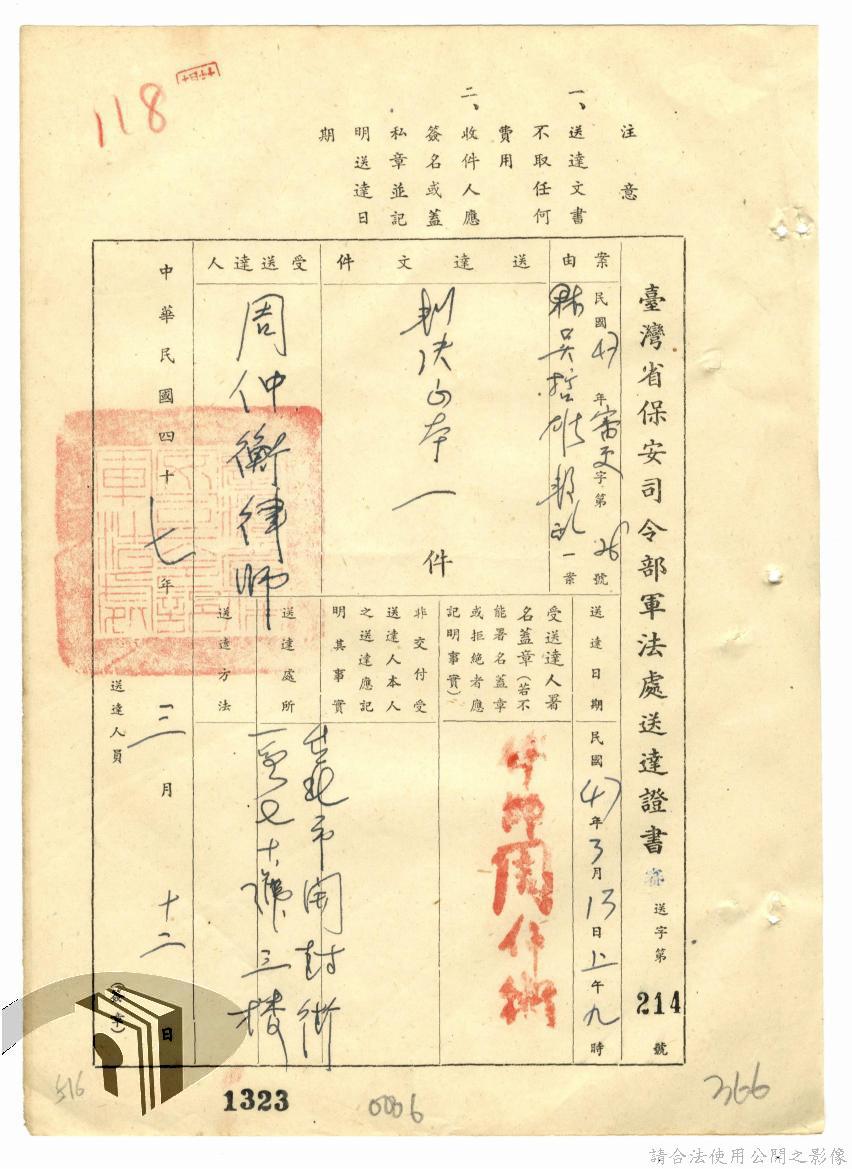 118
注意
一、送達文書
不取任何
費用
二、收件人應
簽名或蓋
私章並記
明送達日
期
臺灣省保安司令部軍法處送達證書 審 送字第 214 號
案由
民國 47 年 審更 字第 26 號
吳哲雄叛亂一案
送達文件
判決正本一件
受送達人
周仲衡律師
送達日期
民國 47 年 3 月 13 日 上午 九 時
受送達人署
名蓋章(若不
能署名蓋章
或拒絕者應
記明事實)
周仲衡
非交付受
送達人本人
之送達應記
明其事實
送達處所
台北市開封街
一段七十號三樓
送達方法
中華民國四十七年三月十二日
送達人員
(簽章)
516
1323
0086
366
請合法使用公開之影像